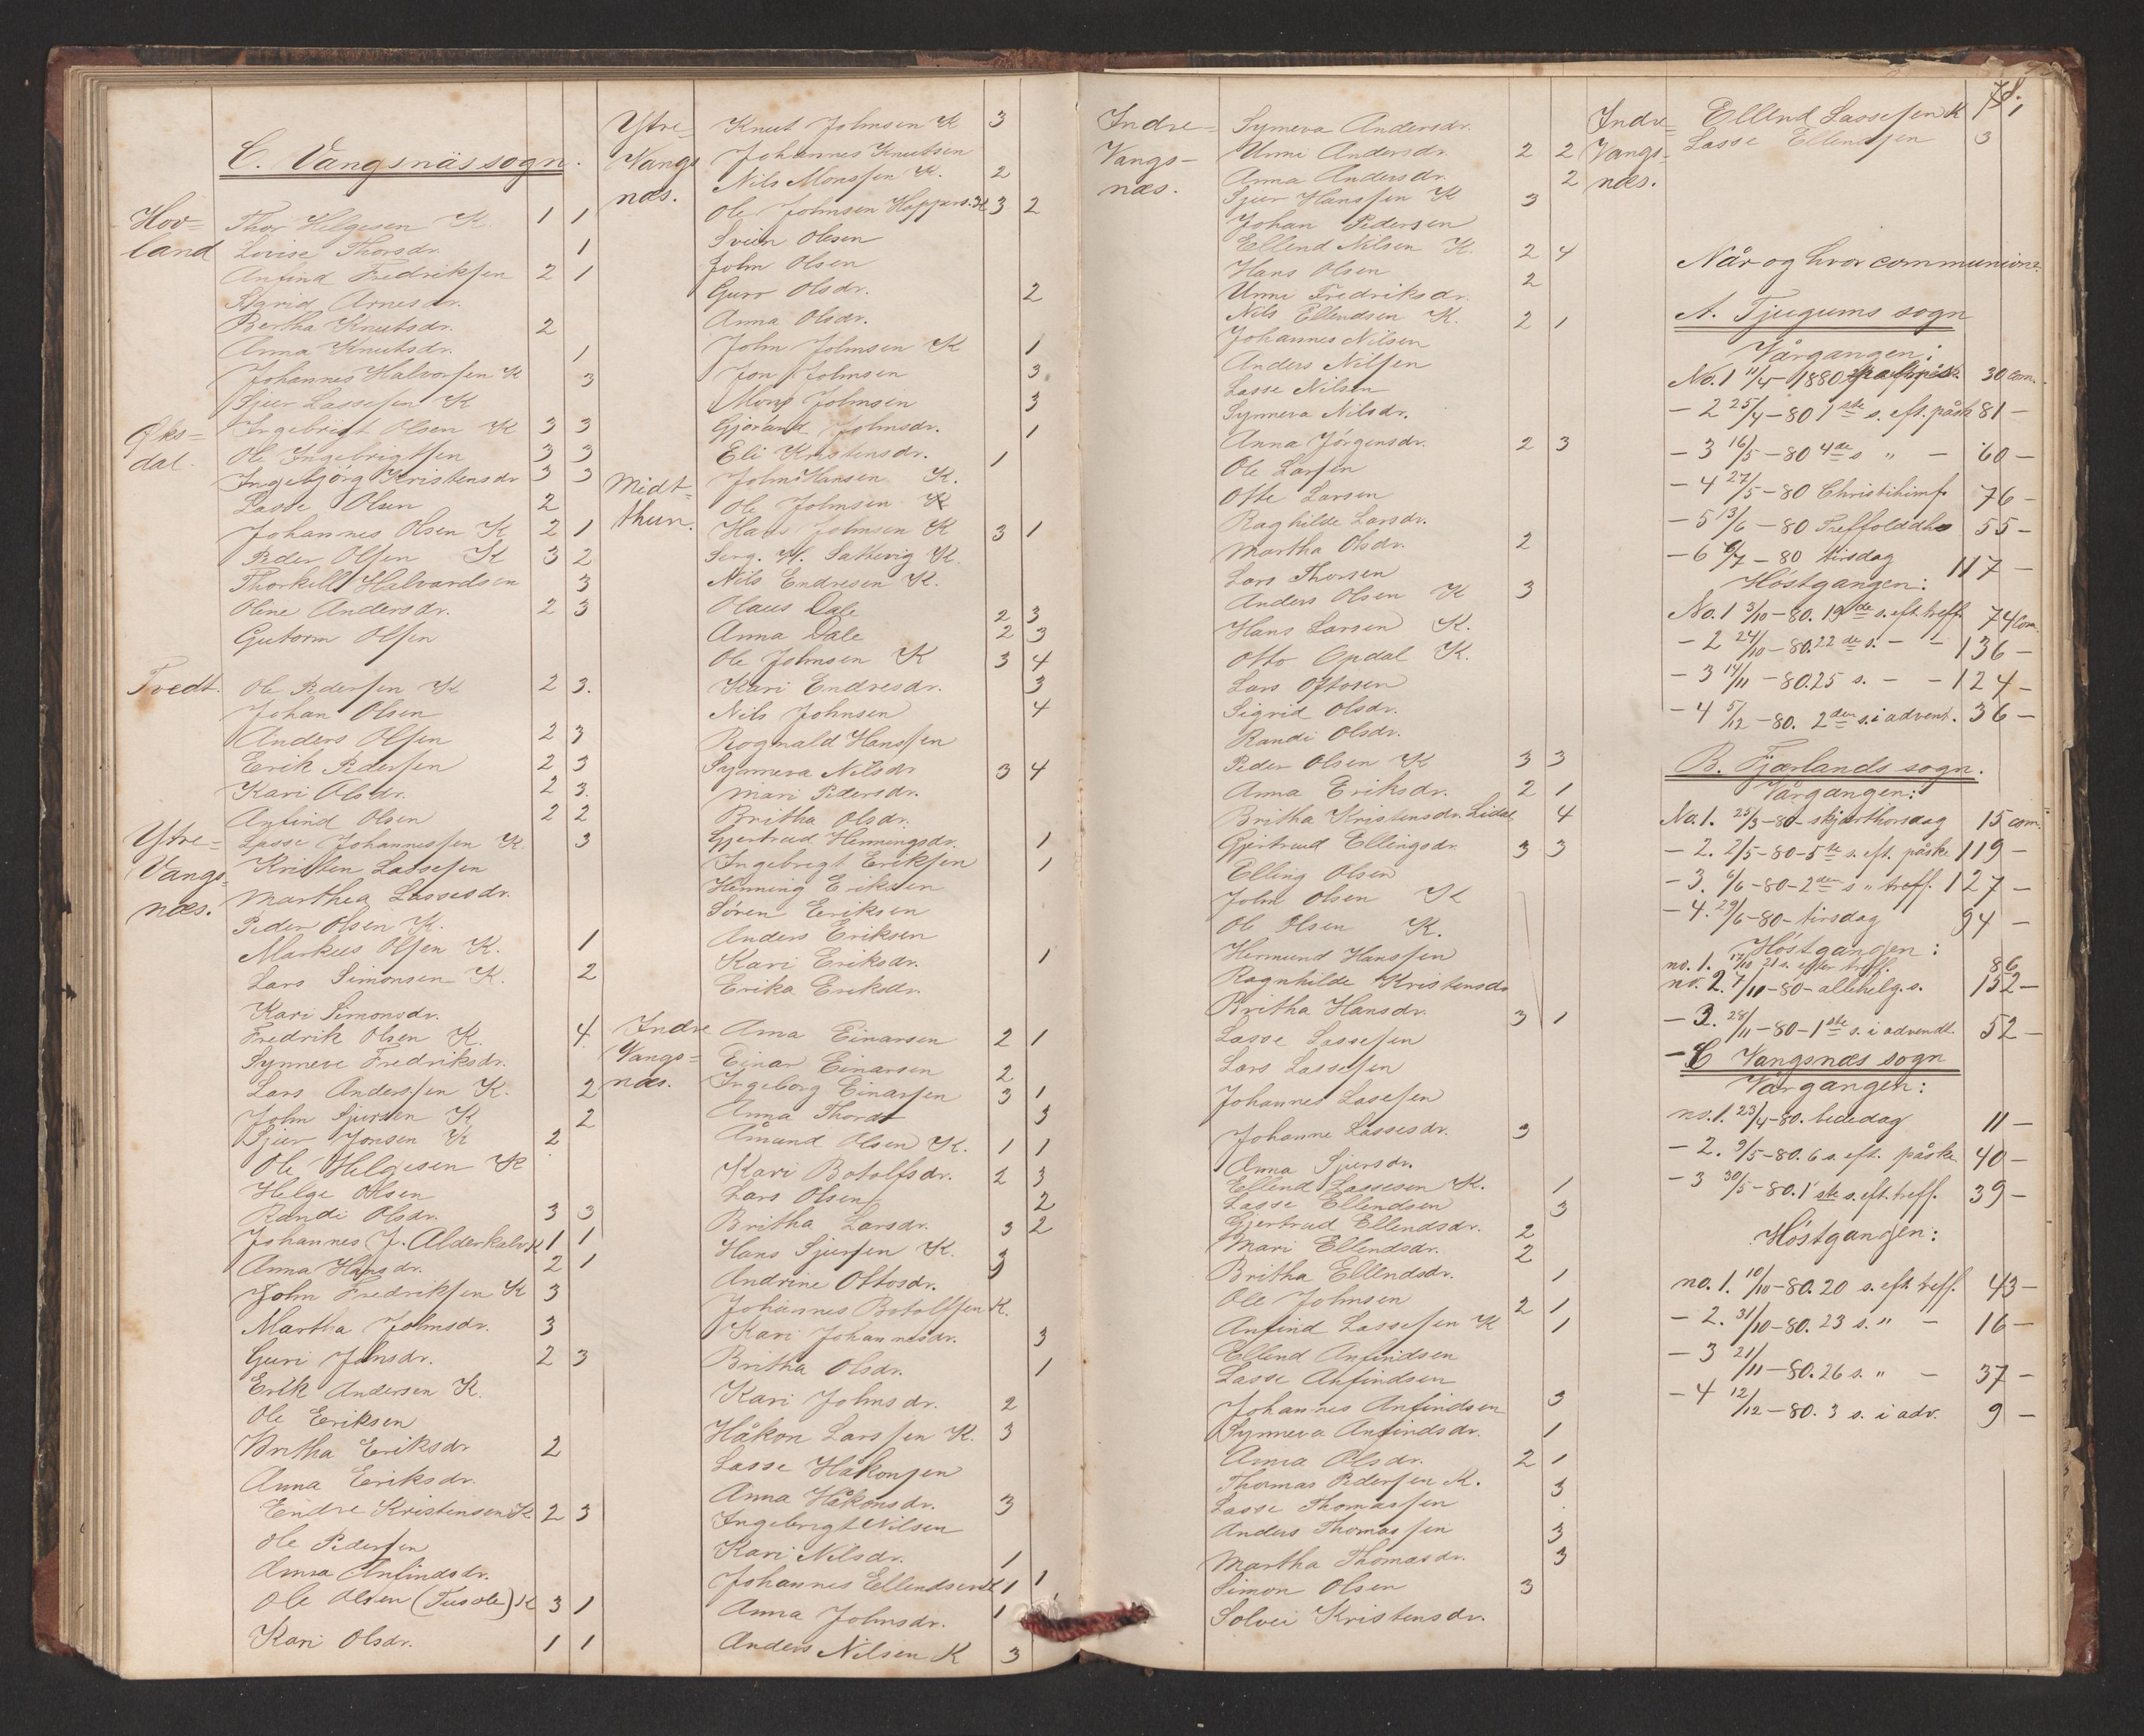 C. Vangsnäs sogn.
Hov=
land
Thor Helgesen K. 1 1
Lovise Thorsdr. 1
Anfind Fredriksen 2 1
Sigrid Arnesdr.
Bertha Knutsdr. 2
Anna Knutsdr. 1
Johannes Halvorsen K 3
Sjur Lassesen K
Øks=
dal.
Ingebrigt Olsen K 3 3
Ole Ingebrigtsen 3 3
Ingebjörg Kristensdr 3 3
Lasse Olsen 2
Johannes Olsen K 2 1
Peder Olsen K 3 2
Thorkell Halvardsen 3
Oline Andersdr. 2 3
Gutorm Olsen
Tvedt.
Ole Pedersen K 2 3.
Johan Olsen
Anders Olsen 2 3
Erik Pedersen 2 3
Kari Olsdr. 2 3.
Anfind Olsen 2 2
Ytre=
Vangs-
næs.
Lasse Johannessen K. 3
Kristen Lassesen
Marthea Lassesdr.
Peder Olsen K.
Markus Olsen K. 1
Lars Simonsen K. 2
Kari Simonsdr.
Fredrik Olsen K. 4
Synneve Fredriksdr.
Lars Anderssen K. 2
John Sjursen K 2
Sjur Jonsen K 2
Ole Helgesen K
Helge Olsen
Randi Olsdr. 3 3
Johannes J. Alderkalv K 1 1
Anna Hansdr. 2 1
John Fredriksen K 3
Martha Johnsdr. 3
Guri Johnsdr. 2 3
Erik Andersen K.
Ole Eriksen
Britha Eriksdr 2
Anna Eriksdr.
Endre Kristensen K 2 3
Ole Pedersen
Anna Anfindsdr.
Ole Olsen K 3 1
Kari Olsdr. 1 1
Ytre=
Vangs
næs.
Knut Johnsen K 3
Johannes Knutsen
Nils Monssen K. 2
Ole Johnsen 3 2
Svein Olesen
John Olsen
Guro Olsdr. 2
Anna Olsdr.
John Johnsen K 1
Jon Johnsen 3
Mons Johnsen 3
Gjörand Johnsdr. 1
Eli Kristensdr. 1
Midt=
thun.
John Hansen K.
Ole Johnsen K
Hans Johnsen K 3 1
Serg. K.
Nils Endresen K.
Olaus Dale 2 3
Anna Dale 2 3
Ole Johnsen K 3 4
Kari Endresdr. 3
Nils Johnsen 4
Rognald Hanssen
Synneva Nilsdr 3 4
Mari Pedersdr.
Britha Olsdr.
Gjertrud Henningsdr. 1
Ingebregt Eriksen 1
Henning Eriksen
Søren Eriksen
Anders Eriksen
Kari Eriksdr. 1
Erika Eriksdr.
Indre
Vangs=
næs.
Anna Einarsen 2 1
Einar Einarsen 2
Ingeborg Einarsen 3 1
Anna Thordr 3
Åmund Olsen K. 1 1
Kari Botolfsdr. 2 3
Lars Olsen 2
Britha Larsdr. 3 2
Hans Sjursen K. 3
Andrine Ottosdr.
Johannes Botolfsen K.
Kari Johannesdr. 3
Britha Olsdr. 1
Kari Johnsdr. 2
Håkon Larssen K. 3
Lasse Håkonsen
Anna Håkonsdr. 3
Ingebrigt Nilsen
Kari Nilsdr. 1
Johannes Ellendsen K 1 1
Anna Johnsdr. 1
Anders Nilsen K 3
Indre=
Vangs-
næs.
Synneva Andersdr.
Unni Andersdr. 2 2
Anna Andersdr. 2
Sjur Hanssen K 3
Johan Pedersen
Ellend Nilsen K. 2 4
Hans Olsen 2
Unni Fredriksdr.
Nils Ellendsen K. 2 1
Johannes Nilsen
Anders Nilsen
Lasse Nilsen
Synneva Nilsdr.
Anna Jörgensdr. 2 3
Ole Larsen
Otte Larsen
Raghilde Larsdr.
Martha Olsdr. 2
Lars Thorsen
Anders Olsen K 3
Hans Larsen K.
Otto Opdal K.
Lars Ottosen
Sigrid Olsdr.
Randi Olsdr.
Peder Olsen K 3 3
Anna Eriksdr. 2 1
Britha Kristensdr. Lidal 4
Gjertrud Ellingsdr. 3 3
Elling Olsen
John Olsen K
Ole Olsen K.
Hermund Hanssen
Ragnhilde Kristensdr
Britha Hansdr. 3 1
Lasse Lassesen
Lars Lassesen
Johannes Lassesen
Johanne Lassesdr. 3
Anna Sjursdr.
Ellend Lassesen K. 1
Lasse Ellendsen 3
Gjertrud Ellendsdr. 2
Mari Ellendsdr. 2
Britha Ellendsdr. 1
Ole Johnsen 2 1
Anfind Lassesen K 1
Ellend Anfindsen
Lasse Anfindsen
Johannes Anfindsen 3
Synneva Anfindsdr. 1
Anna Olsdr. 2 1
Thomas Pedersen K. 3
Lasse Thomassen
Anders Thomassen 3
Martha Thomasdr. 3
Simon Olsen 3
Solvei Kristensdr.
Indre
Vangs-
næs.
Ellend Lassesen K 1 1
Lasse Ellendsen 3
Når og hvor communion:
A. Tjugums sogn
Vårgangen:
No. 1 11/4 - 1880 30 com.
- 2 25/4 - 80 1ste s. eft. påsk 81 -
- 3 16/5 - 80 4de s " - 60 -
- 4 27/5 - 80 Christi himf. 76 -
- 5 13/6 - 80 55 -
- 6 6/7 - 80 tirsdag 117 -
Höstgangen:
No. 1 3/10 - 80. 19de s. eft. treff. 74 com.
- 2 24/10 - 80. 22de s. - - 136 -
- 3 14/11 - 80. 25 s. - - 124 -
- 4 5/12 - 80. 2den s. i advent. 36 -
B. Fjærlands sogn.
Vårgangen:
No. 1. 25/3 - 80 - skjærthorsdag 15 com.
- 2. 2/5 - 80 - 5te s. eft. påske 119 -
- 3. 6/6 - 80 - 2den s " treff. 127 -
- 4. 29/6 - 80 - tirsdag 94 -
Höstgangen:
no. 1. 17/10 21 s. efter treff. 86
no. 2. 7/11 - 80 - allehelg. s. 152 -
- 3. 28/11 - 80 - 1ste s. i advendt. 52 -
- C Vangsnæs sogn
Vårgangen:
no. 1. 23/4 - 80. bededag 11 -
- 2. 9/5 - 80. 6 s. eft. påske 40 -
- 3 30/5 - 80. 1ste s. eft. treff. 39 -
Höstgangen:
no. 1. 10/10 - 80. 20 s. eft. treff. 43 -
- 2. 31/10 - 80. 23 s. " - 16 -
- 3 21/11 - 80. 26 s. " - 37 -
- 4 12/12 - 80. 3 s. i adv. 9 -